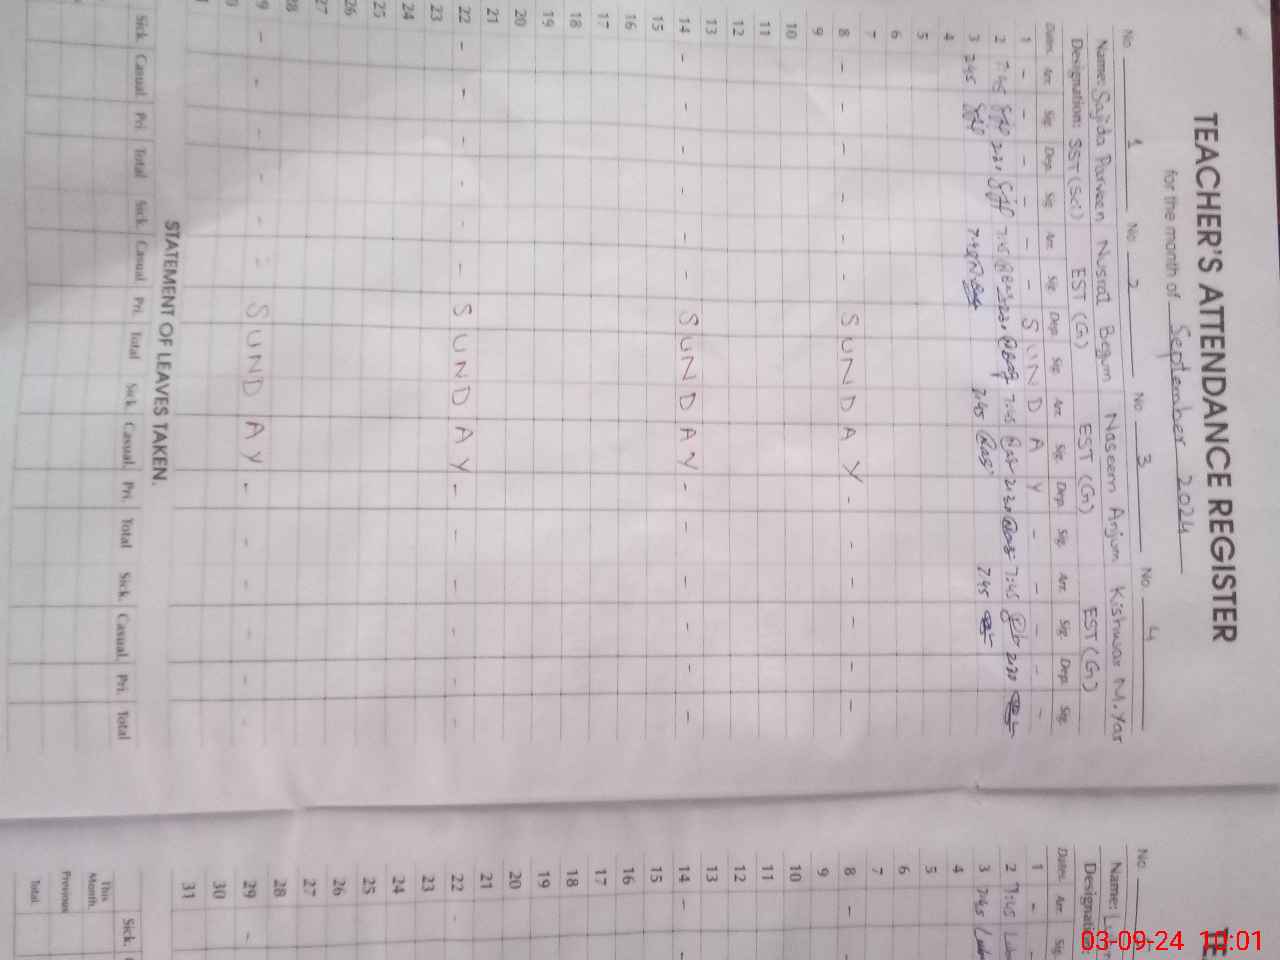 TEACHER'S ATTENDANCE REGISTER
for the month of September 2024
No 1 No 2 No. 3 No. 4
Name: Sajida Parveen Nusrat Begum Naseem Anjum Kishwar M. Yar
Designation: SST (Sci) EST (G) EST (G) EST (G)
Dates Arr. Sig Dep. Sig Arr. Sig Dep. Sig. Arr. Sig. Dep. Sig. Arr. Sig. Dep. Sig.
1 - - - - - - SUNDAY - - - - -
2 7:45 7:45 7:45 2:30 7:45 2:30
3 7:45 7:45 7:45
4
5
6
7
8 - - - - - - SUNDAY - - - - - -
9
10
11
12
13
14 - - - - - - SUNDAY - - - - - -
15
16
17
18
19
20
21
22 - - - - - - SUNDAY - - - - - -
23
24
25
26
27
28
9 - - - - - - SUNDAY - - - - -
STATEMENT OF LEAVES TAKEN.
Sick. Casual. Pri. Total Sick. Casual. Pri. Total Sick. Casual. Pri. Total Sick. Casual. Pri. Total
TE
No
Name:
Designation:
Dates Arr. Sig
1 -
2 7:45
3 7:45
4
5
6
7
8 -
9
10
11
12
13
14 -
15
16
17
18
19
20
21
22 -
23
24
25
26
27
28
29 -
30
31
Sick.
This Month.
Previous
Total
03-09-24